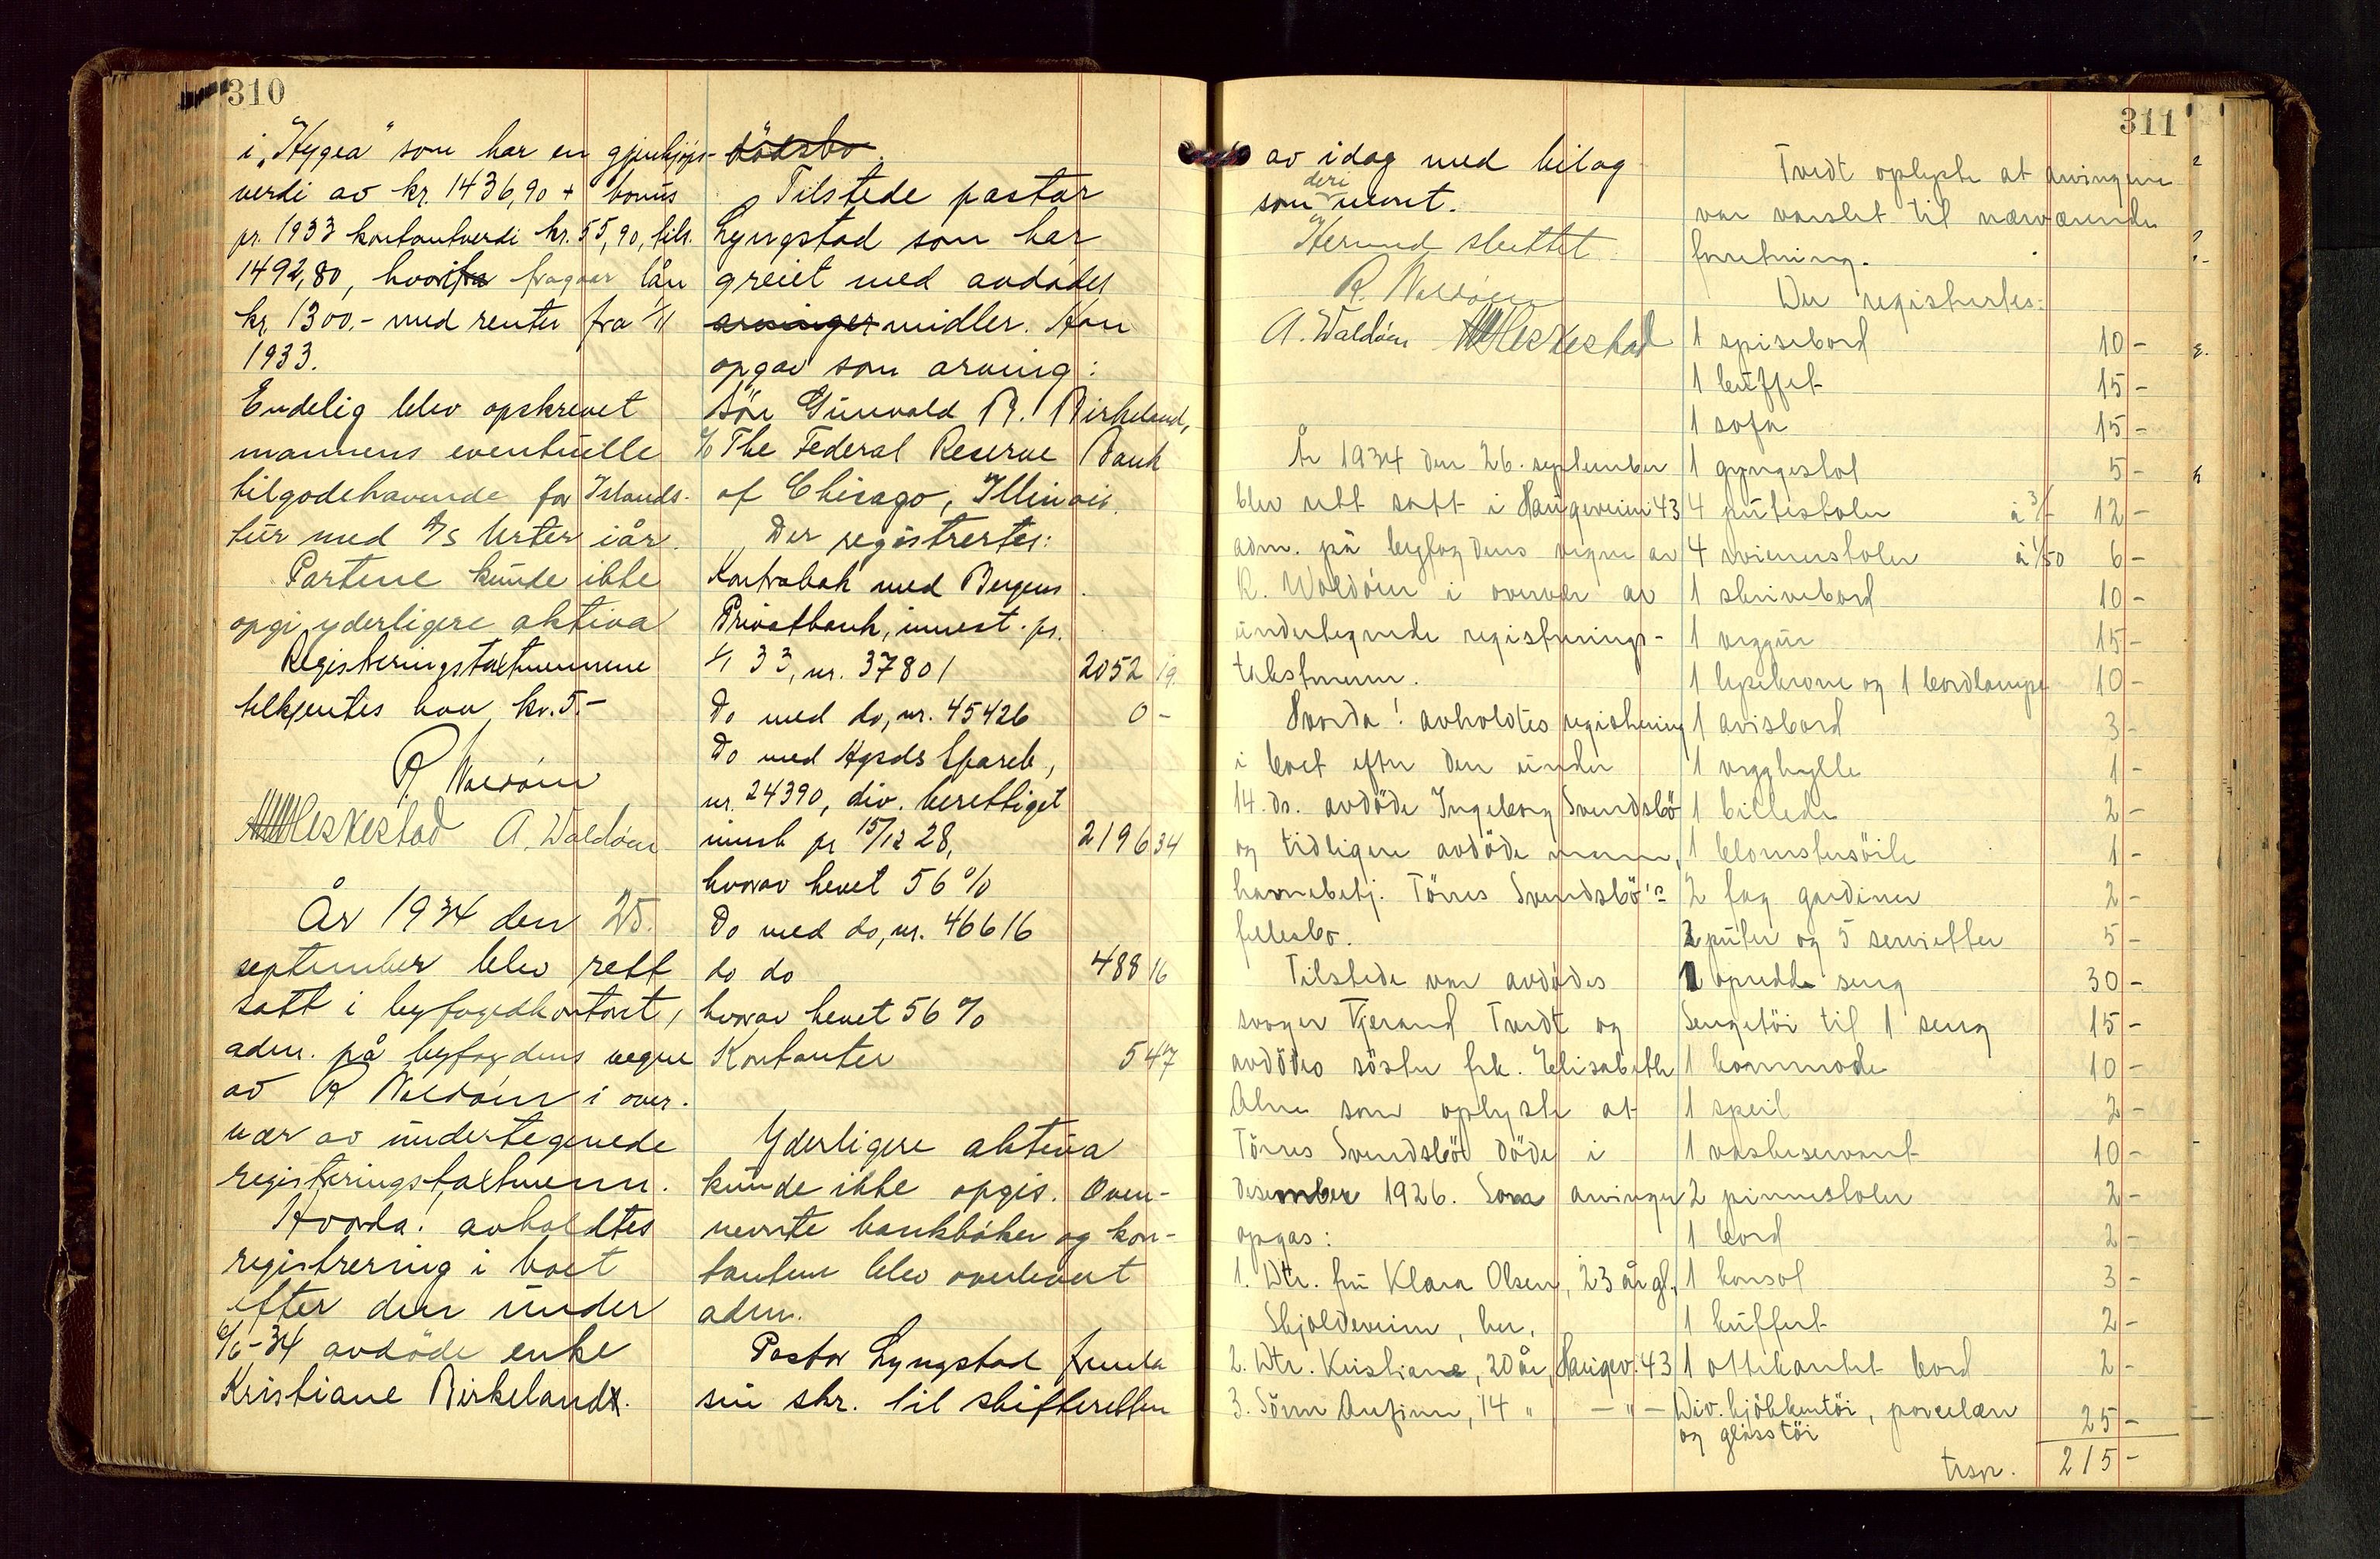 310
i „Hygea" som har en gjenkjøps-
verdi av kr. 1436,90 + bonus
pr. 1933 kontantverdi kr. 55,90, tils.
1492,80, hvorfra fragaar lån
kr. 1300.- med renter fra 1/1
1933.
Endelig blev opskrevet
mannens eventuelle
tilgodehavende for Islands-
tur med S/S Urter iår.
Partene kunde ikke
opgi yderligere aktiva
Registreringstakstmennene
tilkjentes hver kr. 5.-
R. Waldóen
Heskestad A. Waldóen
År 1934 den 25.
september blev rett
satt i byfogedkontoret,
adm. på byfogdens vegne
av R Waldóen i over-
vær av undertegnede
registreringstakstmenn.
Hvorda! avholdtes
registrering i boet
efter den under
6/6-34 avdöde enke
Kristiane Birkeland.
dödsbo.
Tilstede pastor
Lyngstad som har
greiet med avdödes
arvinger midler. Han
opgav som arving:
Sön Gunvald R. Birkeland,
c/o The Federal Reserve Bank
of Chicago, Illinois.
Der registrertes:
Kontrabok med Bergens
Privatbank, innest. pr.
1/1 33, nr. 37801 2052 19
Do med do, nr. 45426 0 -
Do med Hgsds Spareb,
nr. 24390, div. berettiget
innsk pr 15/12 28, 2196 34
hvorav hevet 56 %
Do med do, nr. 46616
do do 488 16
hvorav hevet 56 %
Kontanter 5 47
Yderligere aktiva
kunde ikke opgis. Oven-
nevnte bankböker og kon-
tantene blev overlevert
adm.
Pastor Lyngstad fremla
sin skr. til skifteretten
311
av idag med bilag
deri
som nevnt.
Herved sluttet
R. Waldóen
A. Waldóen Heskestad
År 1934 den 26. september
blev rett satt i Haugeveien 43
adm. på byfogdens vegne av
R. Waldóen i overvær av
undertegnede registrerings-
takstmenn.
Hvorda! avholdtes registrering
i boet efter den under
14. ds. avdöde Ingeborg Svendsbö
og tidligere avdöde mann,
havnebetj. Törres Svendsbö's
fellesbo.
Tilstede var avdödes
svoger Tjerand Tvedt og
avdödes söster frk. Elisabeth
Alne som oplyste at
Törres Svendsbö döde i
desember 1926. Som arvinger
opgas:
1. Dtr. fru Klara Olsen, 23 år gl.,
Skjoldeveien, her.
2. Dtr. Kristiane, 20 år, Haugev. 43
3. Sönn Anfinn, 14 " - " -
Tvedt oplyste at arvingene
var varslet til nærværende
forretning.
Der registrertes:
1 spisebord 10 -
1 buffet 15 -
1 sofa 15 -
1 gyngestol 5 -
4 putestoler à 3/- 12 -
4 wienerstoler à 1/50 6 -
1 skrivebord 10 -
1 veggur 15 -
1 lysekrone og 1 bordlampe 10 -
1 avisbord 3 -
1 vegghylle 1 -
1 billede 2 -
1 blomstersöile 1 -
2 fag gardiner 2 -
2 puter og 5 servietter 5 -
1 opredd seng 30 -
Sengetöi til 1 seng 15 -
1 kommode 10 -
1 speil 2 -
1 vaskeservant 10 -
2 pinnestoler 2 -
1 bord 2 -
1 konsol 3 -
1 kuffert 2 -
1 ottekantet bord 2 -
Div. kjökkentöi, porcelæn
og glasstöi 25 -
trsp. 215 -